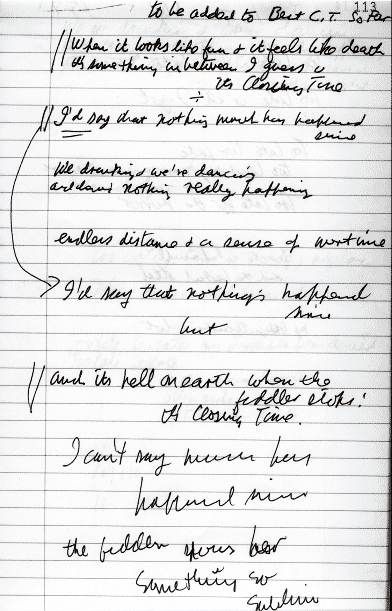 113
to be added to Best C.T. So Far
When it looks like fun & it feels like death
it's something in between I guess
it's Closing Time
I'd say that nothing much has happened
since
We drinking & we're dancing
and nothing really happening
endless distance & a sense of wartime
I'd say that nothing's happened
since
but
and its hell on earth when the
fiddler stops:
it's Closing Time.
I can't say much has
happened since
the
something so